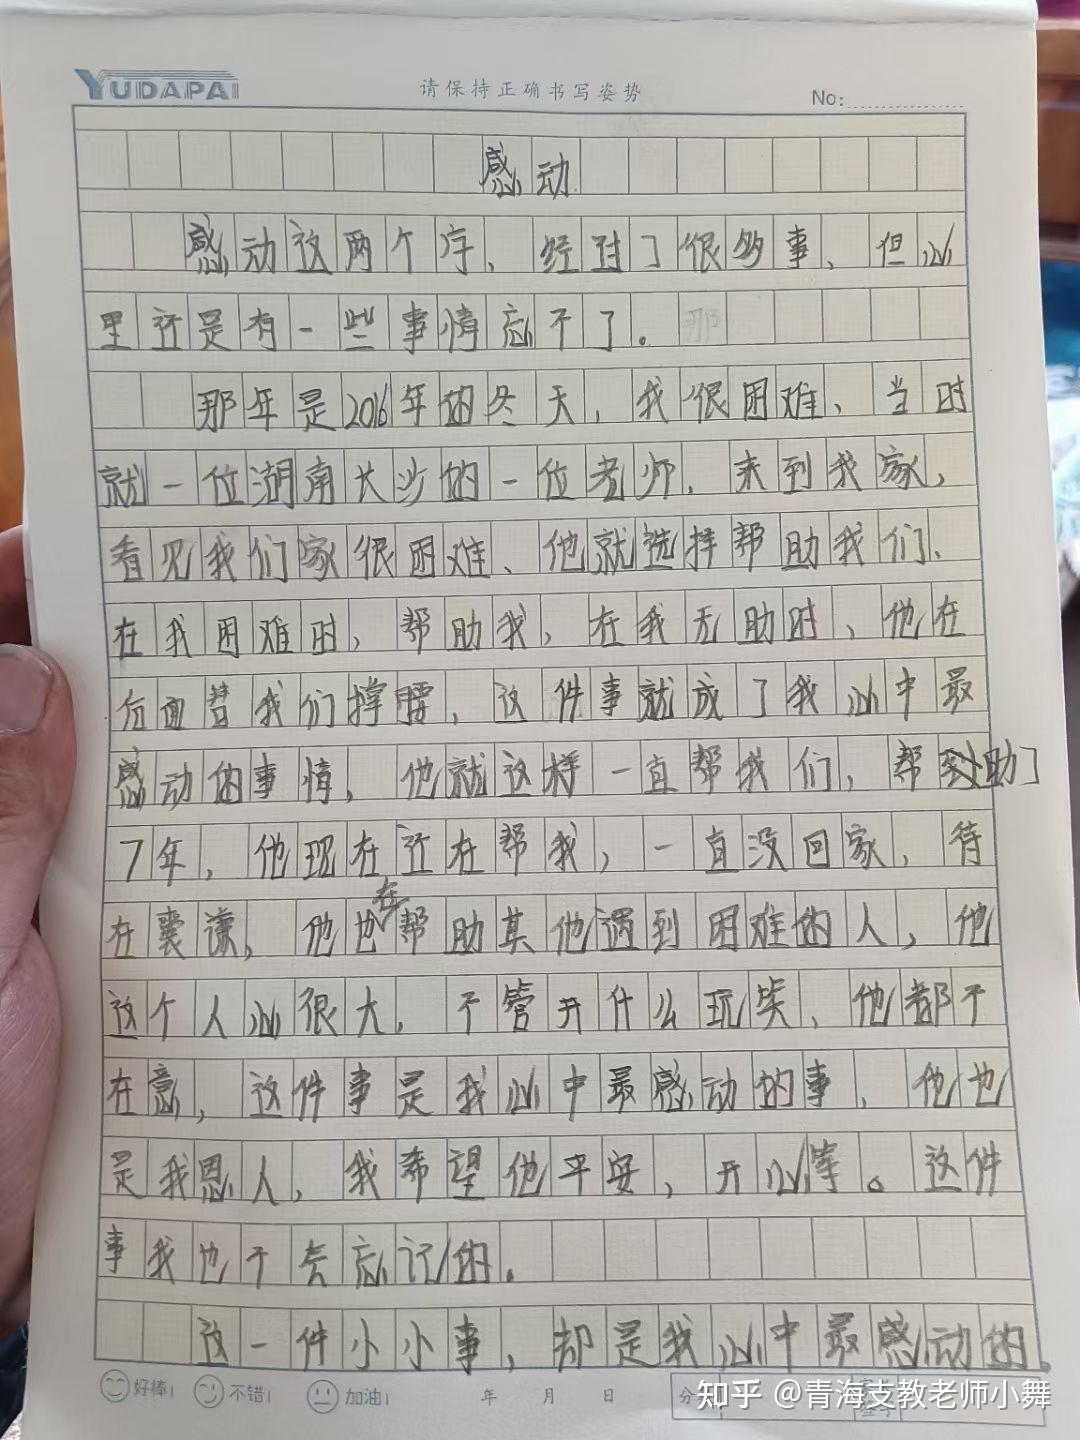 YUDAPAI
请保持正确书写姿势
No:
感动
感动这两个字、经对了很多事、但心
里还是有一些事情忘不了。那
那年是2016年的冬天，我很困难、当时
就一位湖南长沙的一位老师，来到我家，
看见我们家很困难、他就选择帮助我们、
在我困难时，帮助我，在我无助时、他在
后面替我们撑腰，这件事就成了我心中最
感动的事情，他就这样一直帮我们，帮助了
7年，他现在还在帮我，一直没回家，待
在囊谦，他也在帮助其他遇到困难的人，他
这个人心很大，不管开什么玩笑、他都不
在意，这件事是我心中最感动的事，他也
是我恩人，我希望他平安，开心等。这件
事我也不会忘记的。
这一件小小事，却是我心中最感动的。
好棒！ 不错！ 加油！ 年 月 日 分
知乎 @青海支教老师小舞